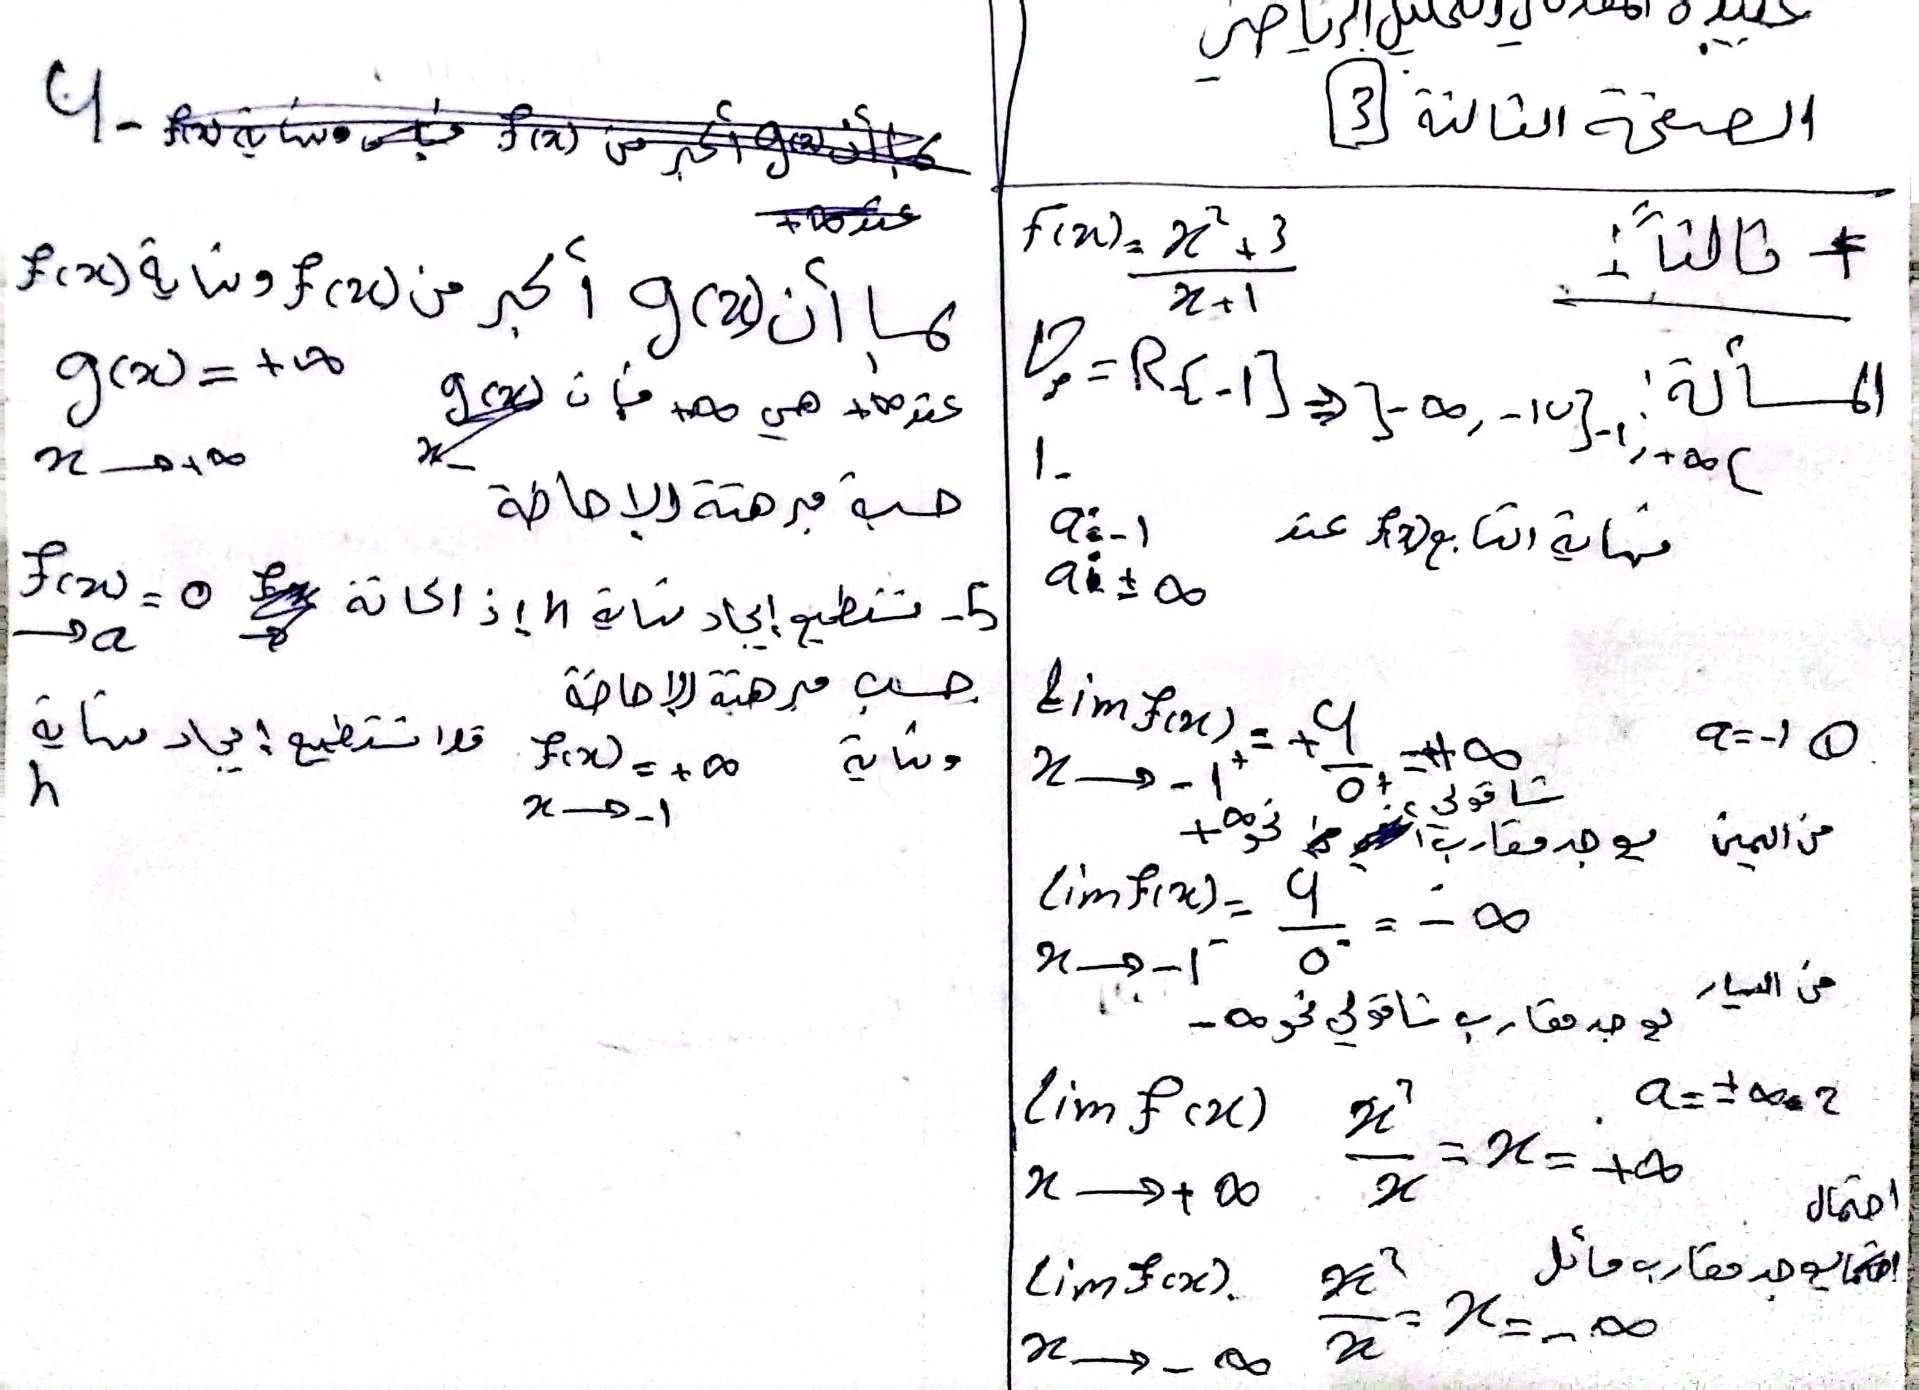 الصفحة الثالثة 3
ثالثاً:
المسألة:
f(x) = x² + 3 / x + 1
D_f = R{-1} ⇒ ]-∞, -1 ∪ ]-1, +∞(
1-
نهاية التابع f(x) عند
a = -1
a = ±∞
① a = -1
lim f(x) = +4 / 0+ = +∞
x → -1+
من اليمين يوجد مقارب شاقولي نحو +∞
lim f(x) = 4 / 0- = -∞
x → -1-
من اليسار
يوجد مقارب شاقولي نحو -∞
2 a = ±∞
lim f(x) x² / x = x = +∞
x → +∞
احتمال
يوجد مقارب مائل
lim f(x) x² / x = x = -∞
x → -∞
4-
بما أن g(x) أكبر من f(x) ونهاية f(x)
عند +∞ هي +∞ فإن g(x) = +∞
x → +∞
حسب مبرهنة الإحاطة
5- نستطيع إيجاد نهاية h إذا كانت f(x) = 0
→ a
حسب مبرهنة الإحاطة
ونهاية f(x) = +∞ فلا نستطيع إيجاد نهاية
x → -1
h